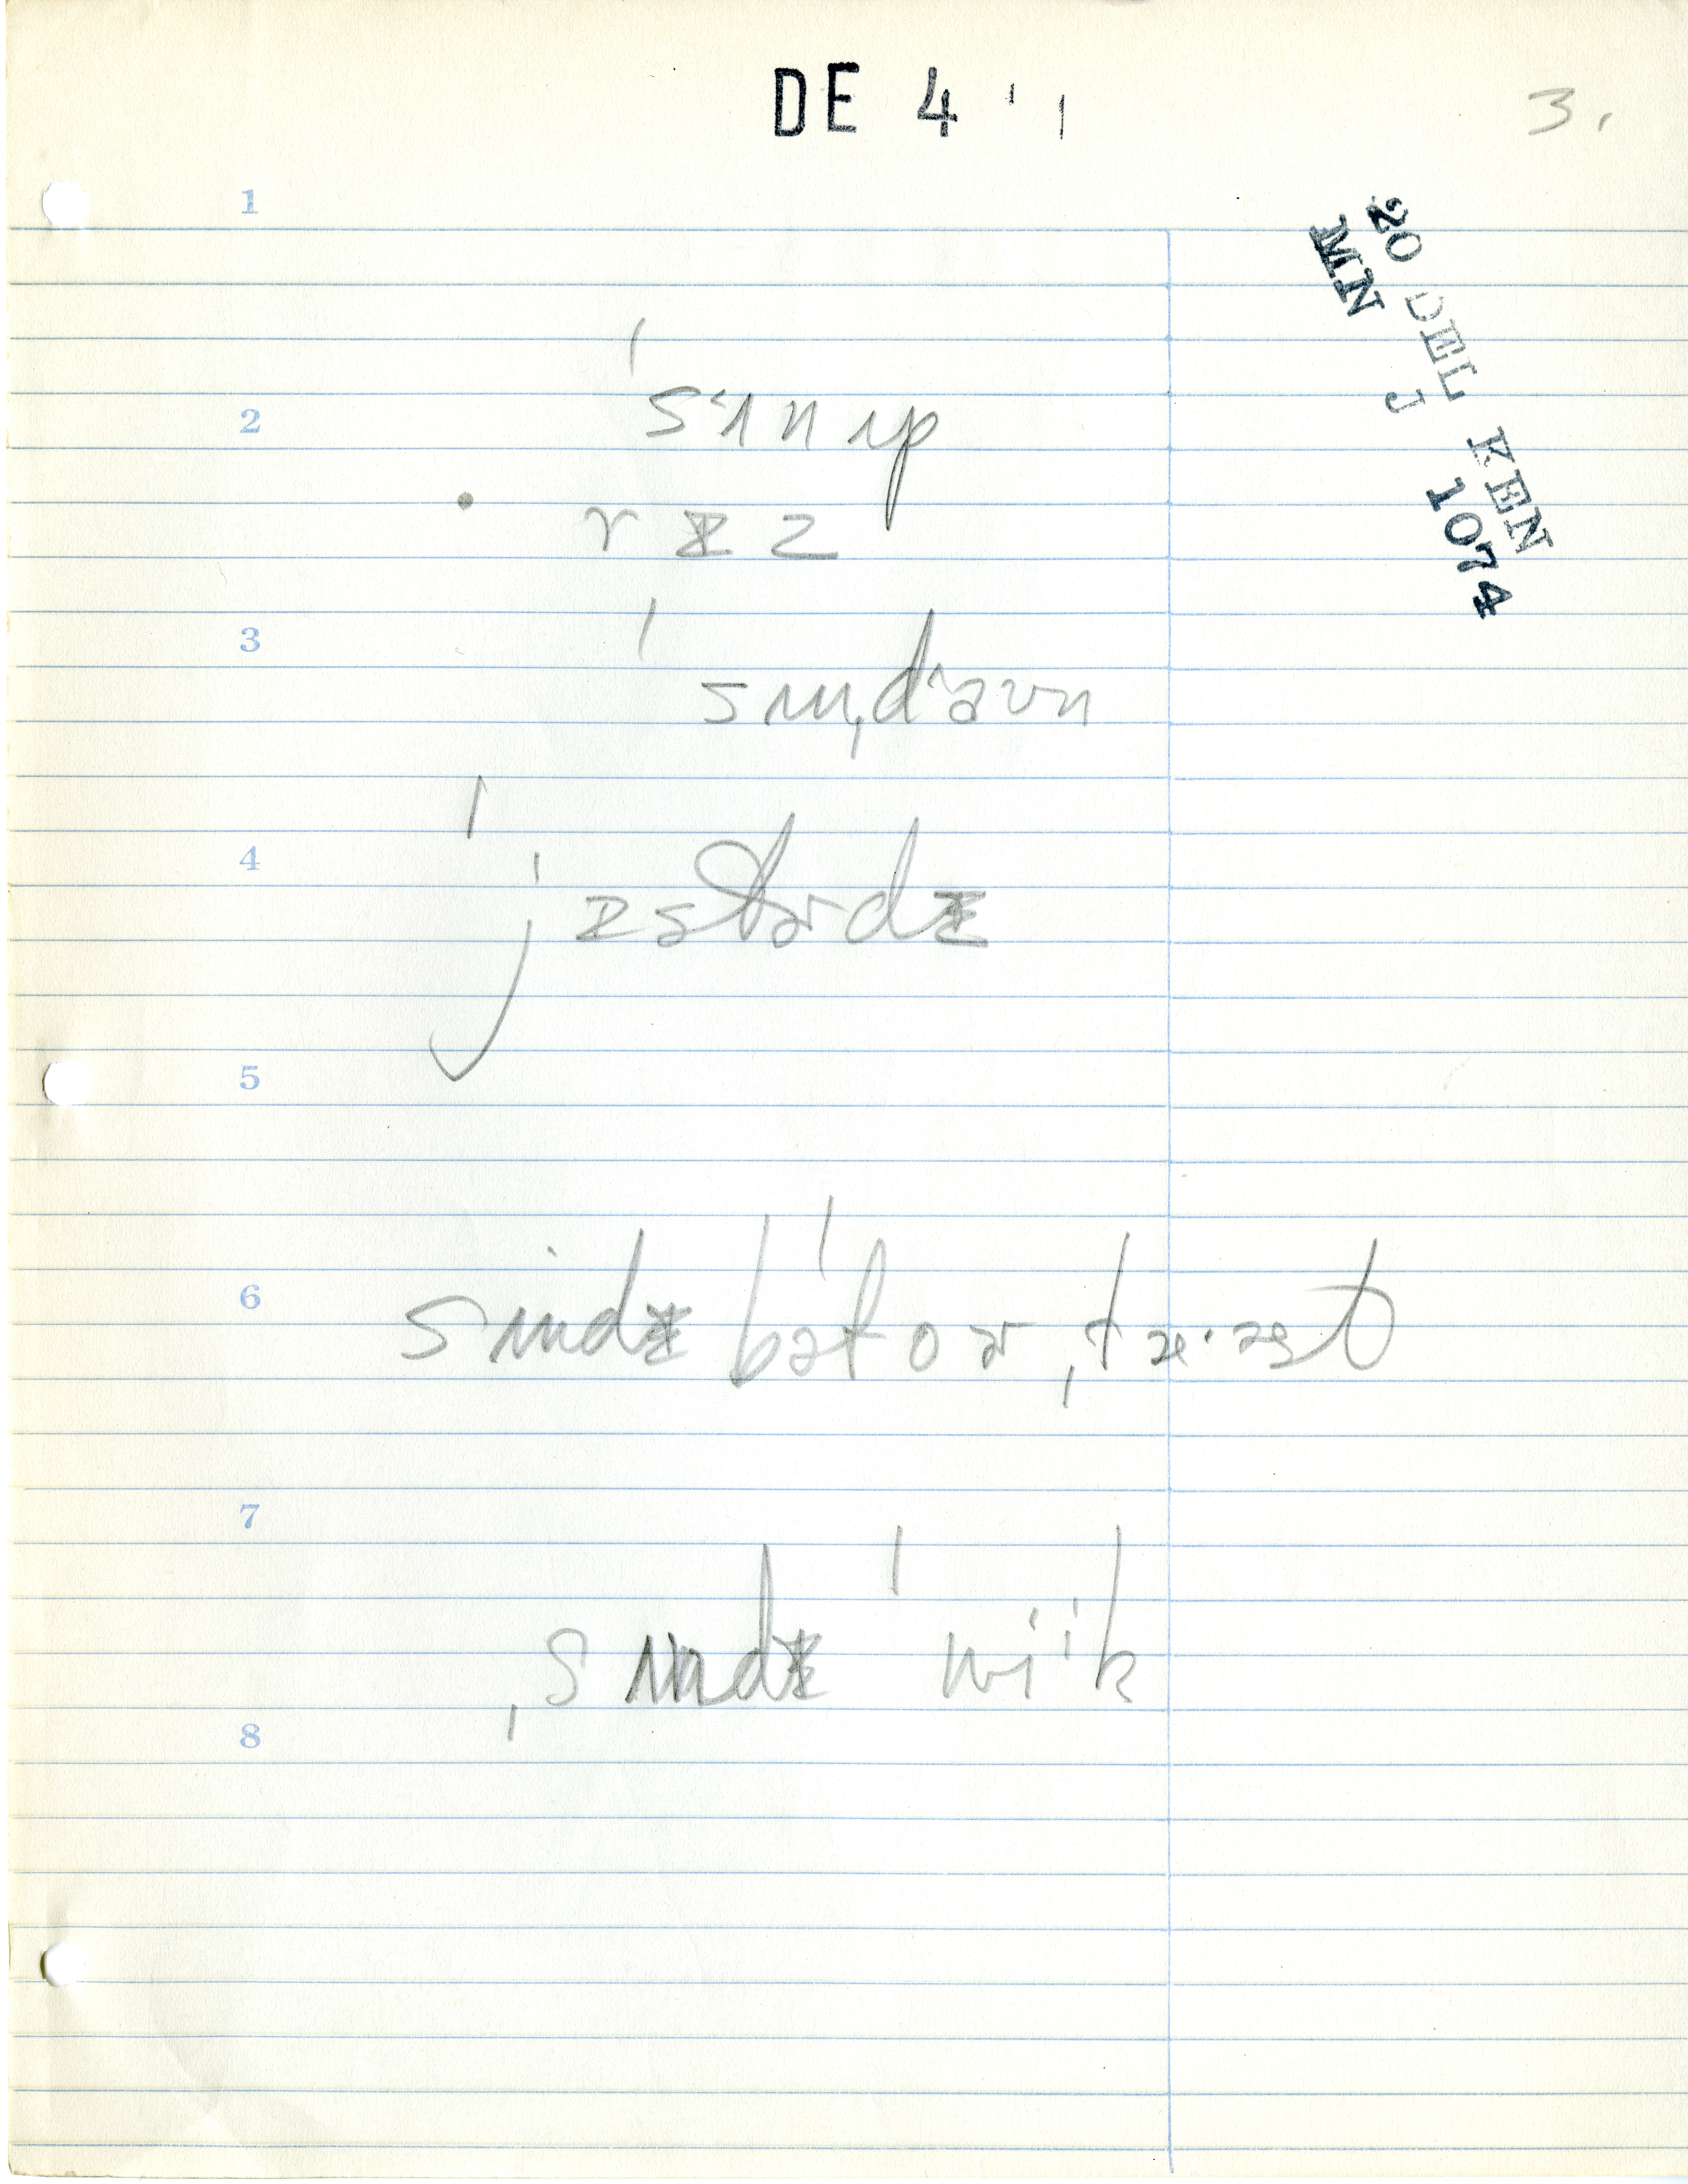 DE 4 ' '
3.
20 DEL KEN
MN J 1074
1
2
ˈsʌnʌp
rɪz
3
ˈsʌnˌdaʊn
4
ˈjɪstərdɪ
5
6
sʌndɪ bəˈfoər ˌfæəst
7
ˌsʌndɪ ˈwik
8